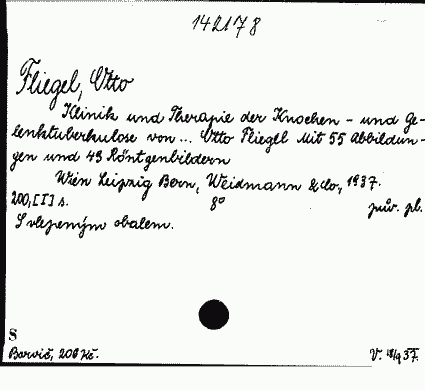 142178
Fliegel, Otto
Klinik und Therapie der Knochen - und Ge-
lenktuberkulose von ... Otto Fliegel Mit 55 Abbildun-
gen und 49 Röntgenbildern
Wien Leipzig Bern, Weidmann & Co, 1937.
200, [I] s. 8° pův. pl.
S vlepeným obalem.
S
Barvič, 206 Kč. V. 37.